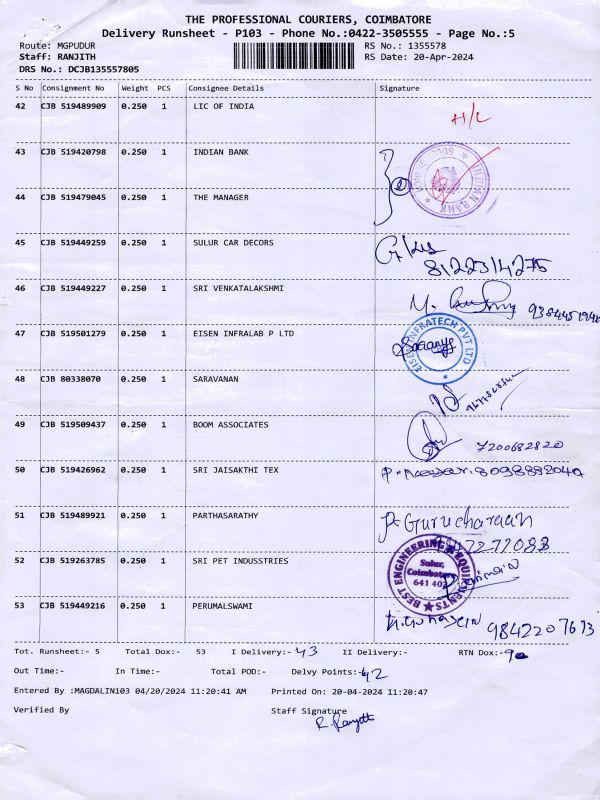 THE PROFESSIONAL COURIERS, COIMBATORE
Delivery Runsheet - P103 - Phone No.:0422-3505555 - Page No.:5
Route: MGPUDUR RS No.: 1355578
Staff: RANJITH RS Date: 20-Apr-2024
DRS No.: DCJB135557805
S No Consignment No Weight PCS Consignee Details Signature
42 CJB 519489909 0.250 1 LIC OF INDIA H/L
43 CJB 519420798 0.250 1 INDIAN BANK
INDIAN BANK
44 CJB 519479045 0.250 1 THE MANAGER
45 CJB 519449259 0.250 1 SULUR CAR DECORS
8122314275
46 CJB 519449227 0.250 1 SRI VENKATALAKSHMI
47 CJB 519501279 0.250 1 EISEN INFRALAB P LTD
48 CJB 80338070 0.250 1 SARAVANAN
49 CJB 519509437 0.250 1 BOOM ASSOCIATES
7200682820
50 CJB 519426962 0.250 1 SRI JAISAKTHI TEX
51 CJB 519489921 0.250 1 PARTHASARATHY P. Gurucharaan
52 CJB 519263785 0.250 1 SRI PET INDUSSTRIES
BEST ENGINEERING EQUIPMENTS
Sulur,
Coimbatore
641 402
53 CJB 519449216 0.250 1 PERUMALSWAMI
9842207673
Tot. Runsheet:- 5 Total Dox:- 53 I Delivery:- 43 II Delivery:- RTN Dox:-
Out Time:- In Time:- Total POD:- Delvy Points:- 42
Entered By :MAGDALIN103 04/20/2024 11:20:41 AM Printed On: 20-04-2024 11:20:47
Verified By Staff Signature